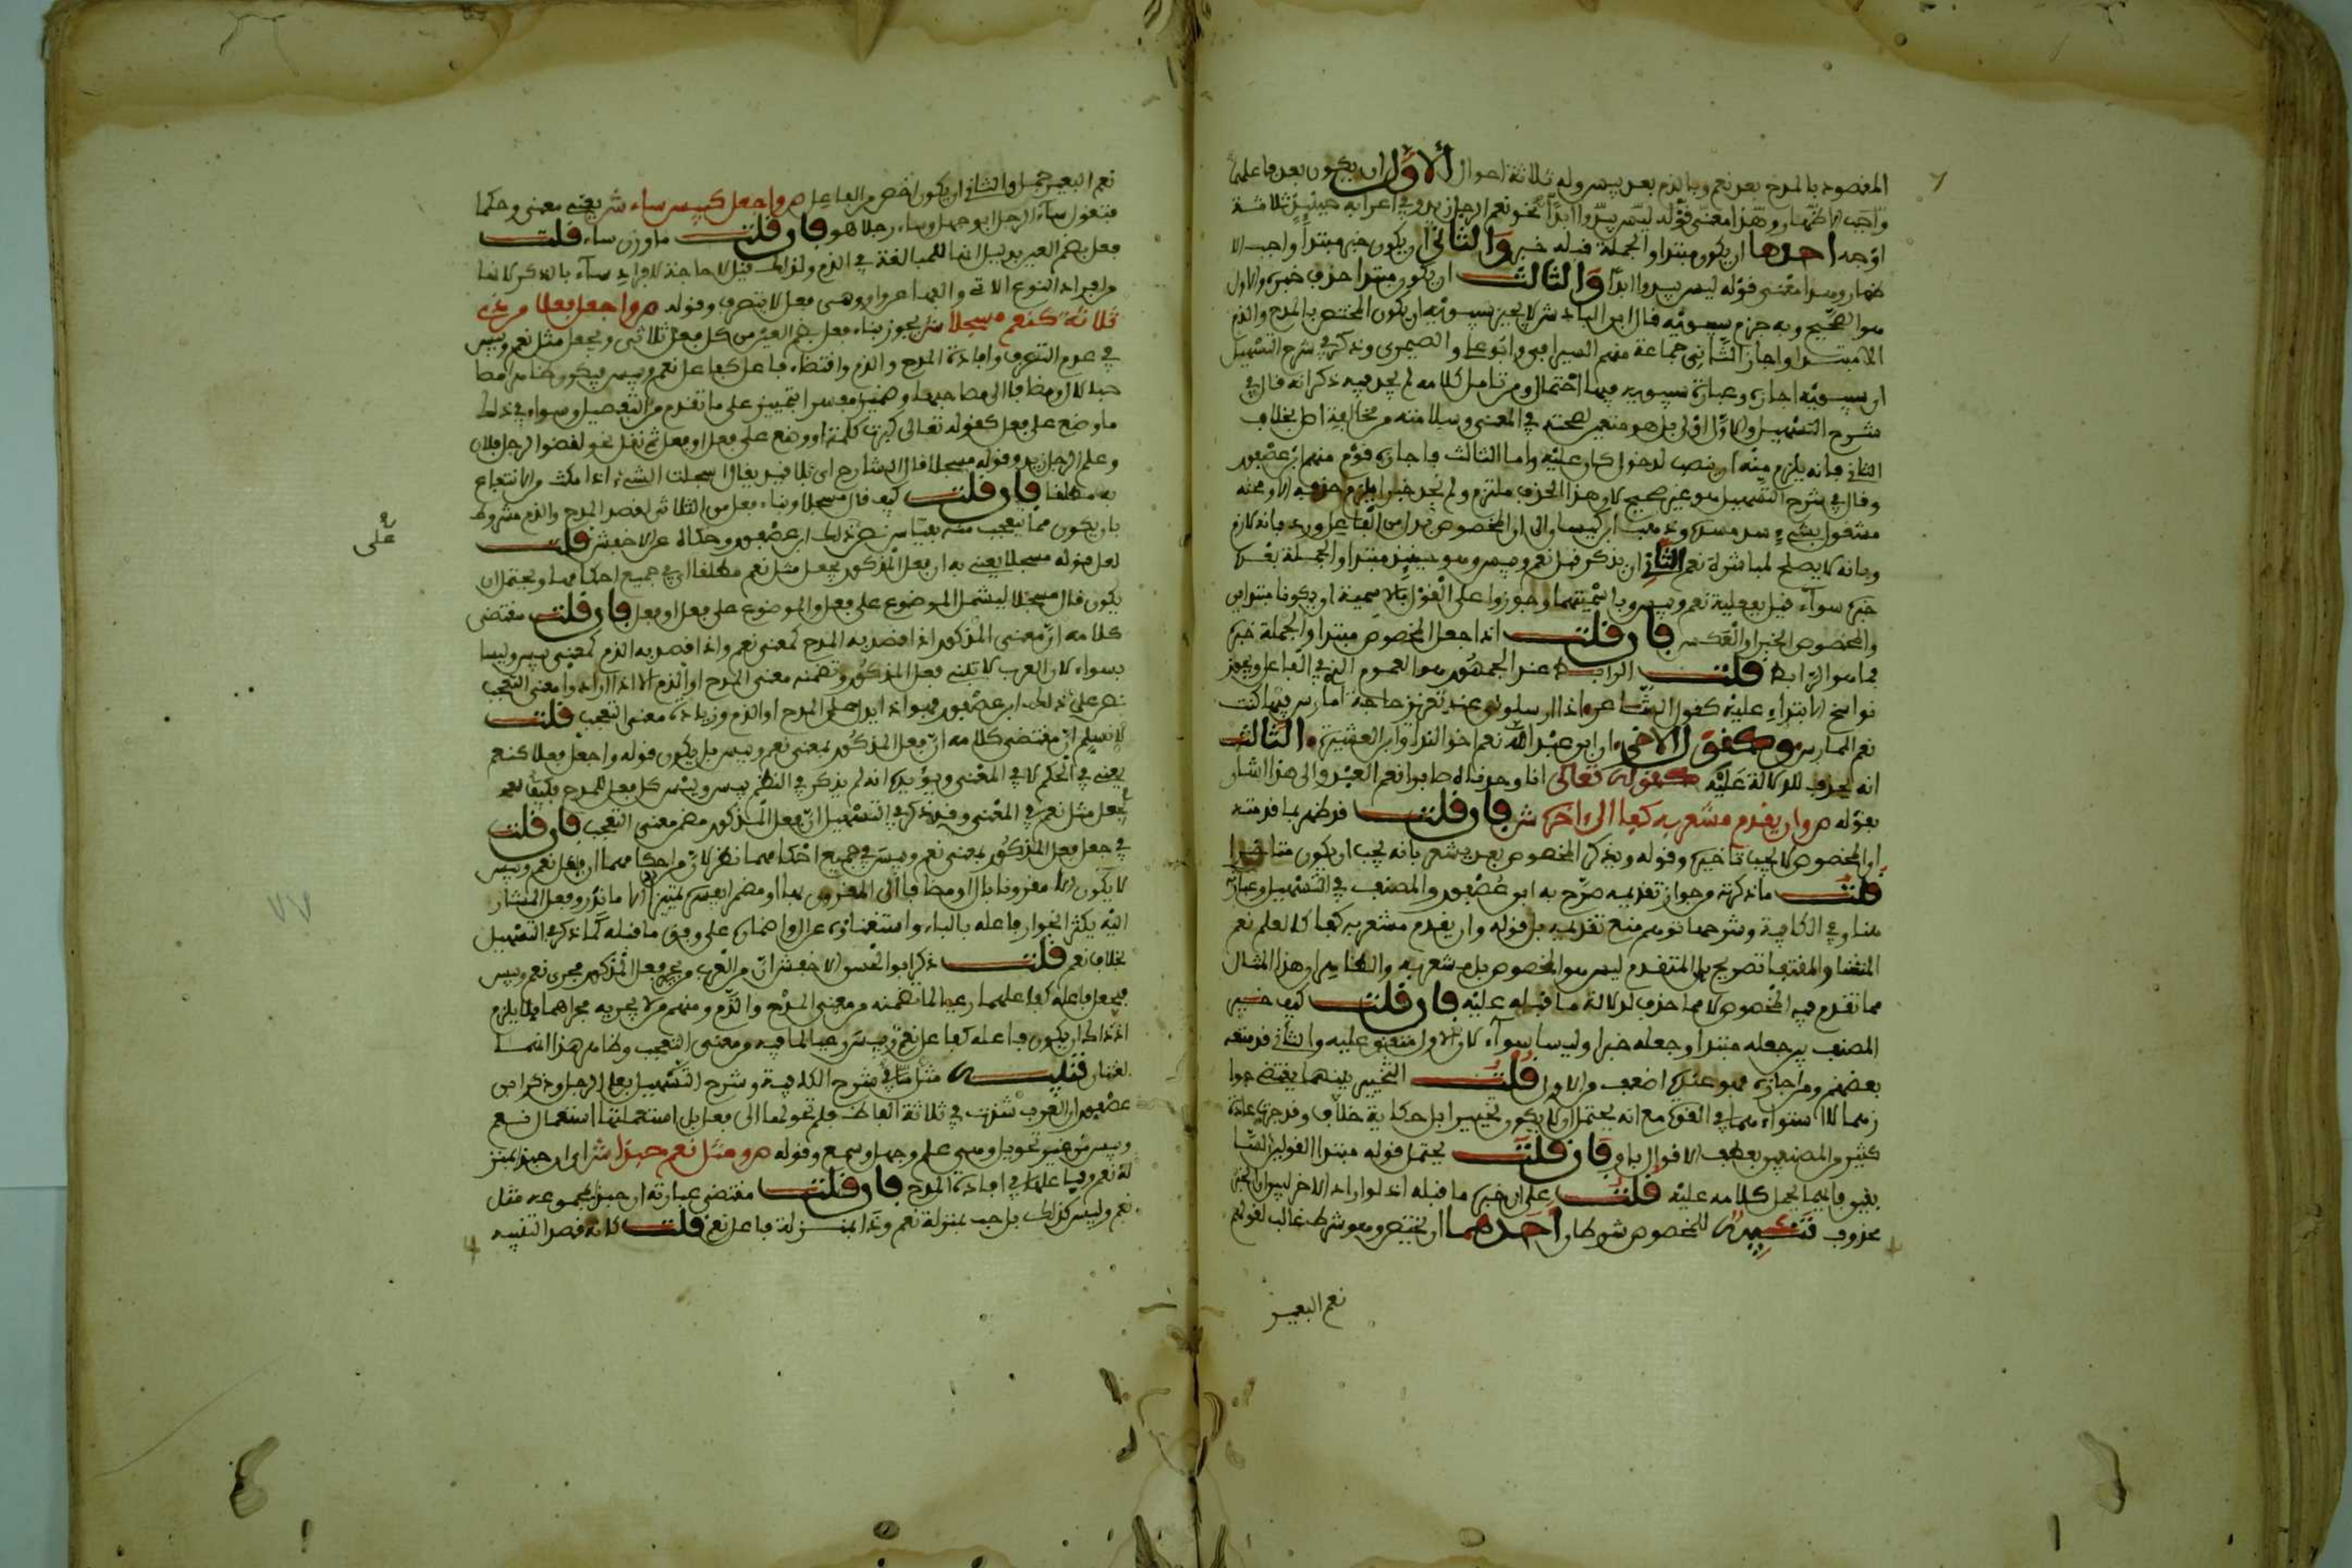 المقصود بالمدح بعد نعم وبالذم بعد بيس وله ثلاثة احوال الأول ان يكون بعد فاعلهما
واجب الاظهار وهذا معنى قوله ليس يبدوا ابدا نحو نعم الرجل زيد وفي اعرابه حينئذ ثلاثة
اوجه احدها ان يكون مبتدا والجملة قبله خبره والثاني ان يكون خبر مبتدا واجب الا
ضمار وهذا معنى قوله ليس يبدوا ابدا والثالث ان يكون مبتدا حذف خبره والاول
هو الصحيح وبه جزم سيبويه قال ابن الباذش لا يجيز سيبويه ان يكون المختص بالمدح والذم
الا مبتدا واجاز الثاني جماعة منهم السيرافي وابو علي والصيمري وذكر في شرح التسهيل
ان سيبويه اجازه وعبارة سيبويه فيها احتمال ومن تامل كلامه لم يجد فيه ذكر انه قال في
شرح التسهيل والاول اولى بل هو متعين لصحته في المعنى وسلامته من مخالفة اصل بخلاف
الثاني فانه يلزم منه ان ينصب لدخول كان عليه واما الثالث فاجازه قوم منهم ابن عصفور
وقال في شرح التسهيل هو غير صحيح لان هذا الحذف ملتزم ولم نجد خبرا يلزم حذفه الا ومحله
مشغول بشيء يسد مسده وذهب ابن كيسان الى ان المخصوص بدل من الفاعل ورد بانه لازم
وبانه لا يصلح لمباشرة نعم الثاني ان يذكر قبل نعم وبيس وهو حينئذ مبتدا والجملة بعده
خبره سواء قيل بفعلية نعم وبيس او باسميتهما وجوزوا على القول بالاسمية ان يكونا مبتداين
والمخصوص الخبر او العكس فان قلت اذا جعل المخصوص مبتدا والجملة خبره
فما هو الرابط قلت الرابط عند الجمهور هو العموم الذي في الفاعل ويجوز
نواسخ الابتداء عليه كقول الشاعر اذا ارسلوني عند تعذير حاجة امارس فيها كنت
نعم الممارس وكقول الاخر ان ابن عبد الله نعم اخو الندا وابن العشيرة الثالث
انه يحذف للدلالة عليه كقوله تعالى انا وجدناه صابرا نعم العبد والى هذا اشار
بقوله ص وان يقدم مشعر به كفا الى اخره ش فان قلت قد ظهر بما قدمته
ان المخصوص لا يجب تاخيره وقوله ويذكر المخصوص بعد يشعر بانه يجب ان يكون متاخرا
قلت ما ذكرته من جواز تقديمه صرح به ابن عصفور والمصنف في التسهيل وعبارته
هنا وفي الكافية وشرحها توهم منع تقديمه بل قوله وان يقدم مشعر به كفا كالعلم نعم
المقتنا والمقتفا تصريح بان المتقدم ليس هو المخصوص بل مشعر به والظاهر ان هذا المثال
مما تقدم فيه المخصوص لا مما حذف لدلالة ما قبله عليه فان قلت كيف خير
المصنف بين جعله مبتدا وجعله خبرا وليسا سواء لان الاول متفق عليه والثاني قد منعه
بعضهم ومن اجازه فهو عنده اضعف من الاول قلت التخيير بينهما يقتضي جوا
زهما لا استواءهما في القوة مع انه يحتمل ان لا يكون تخييرا بل حكاية خلاف وقد جرت عادة
كثير من المصنفين بعطف الاقوال باو فان قلت يحتمل قوله مبتدا القولين السا
بقين فايهما يحمل كلامه عليه قلت على ان خبره ما قبله اذ لو اراد الاخر لبين ان الخبر
محذوف تنبيه للمخصوص شرطان احدهما ان يختص وهو شرط غالب لقولهم
نعم البعير
نعم البعير جمل والثاني ان يكون اخص من الفاعل ص واجعل كبيس ساء ش يعني معنى وحكما
فتقول ساء الرجل ابو جهل وساء رجلا هو فان قلت ما وزن ساء قلت
فعل بضم العين بدليل انها للمبالغة في الذم ولذلك قيل لا حاجة لافراد ساء بالذكر لانها
من افراد النوع الاتي والفها عن واو وهي فعل لا يتصرف وقوله ص واجعل فعلا من ذي
ثلاثة كنعم مسجلا ش يجوز بناء فعل بضم العين من كل فعل ثلاثي ويجعل مثل نعم وبيس
في عدم التصرف وافادة المدح والذم واقتضاء فاعل كفاعل نعم وبيس فيكون ظاهرا مصا
حبا لال او مضافا الى مصاحبها وضمير مفسرا بتمييز على ما تقدم من التفصيل وسواء في ذلك
ما وضع على فعل كقوله تعالى كبرت كلمة او وضع على فعل او فعل ثم نقل نحو لقضوا الرجل فلان
وعلم الرجل زيد وقوله مسجلا قال الشارح اي بلا قيد يقال اسجلت الشيء اذا امكنت من الانتفاع
به مطلقا فان قلت كيف قال مسجلا وبناء فعل من الثلاثي لقصد المدح والذم مشروط
بان يكون مما يتعجب منه بقياس نص على ذلك ابن عصفور وحكاه عن الاخفش قلت
لعل قوله مسجلا يعني به ان فعل المذكور يجعل مثل نعم مطلقا اي في جميع احكامها ويحتمل ان
يكون قال مسجلا ليشمل الموضوع على فعل والموضوع على فعل او فعل فان قلت مقتضى
كلامه ان معنى المذكور اذا قصد به المدح كمعنى نعم واذا قصد به الذم كمعنى بيس وليسا
بسواء لان العرب لا تبني فعل المذكور وتضمنه معنى المدح او الذم الا اذا ارادوا معنى التعجب
نص على ذلك ابن عصفور فهو اذا يدل على المدح او الذم وزيادة معنى التعجب قلت
لا نسلم ان مقتضى كلامه ان فعل المذكور بمعنى نعم وبيس بل يكون قوله واجعل فعلا كنعم
يعني في الحكم لا في المعنى ويؤيده انه لم يذكر في النظم بيس وليس كل فعل للمدح فكيف
يجعل مثل نعم في المعنى وقد ذكر في التسهيل ان فعل المذكور مضمن معنى التعجب فان قلت
في جعل فعل المذكور بمعنى نعم وبيس في جميع احكامهما نظر لان من احكامهما ان فاعل نعم وبيس
لا يكون الا مقرونا بال او مضافا الى المقرون بها او مضمرا يفسره تمييز الا ما ندر وفعل المشار
اليه يكثر انجرار فاعله بالباء واستغناؤه عن ال واضماره على وفق ما قبله كما ذكر في التسهيل
بخلاف نعم قلت ذكر ابو الحسن الاخفش ان من العرب من يجري فعل المذكور مجرى نعم وبيس
فيجعل فاعله كفاعلهما رعيا لما تضمنه من معنى المدح والذم ومنهم من لا يجريه مجراهما فلا يلزم
اذ ذاك ان يكون فاعله كفاعل نعم وبيس رعيا لما فيه من معنى التعجب وظاهر هذا انهما
لغتان تنبيه مثل هنا في شرح الكافية وشرح التسهيل بعلم الرجل وذكر ابن
عصفور ان العرب شذت في ثلاثة الفاظ فلم تحولها الى فعل بل استعملتها استعمال نعم
وبيس من غير تحويل وهي علم وجهل وسمع وقوله ص ومثل نعم حبذا ش اي ان حبذا مثل
نعم وفاعلها في افادة المدح فان قلت مقتضى عبارته ان حبذا بمجموعه مثل
نعم وليس كذلك بل حب بمنزلة نعم وذا بمنزلة فاعل نعم قلت كانه قصد التنبيه
على
٧٧